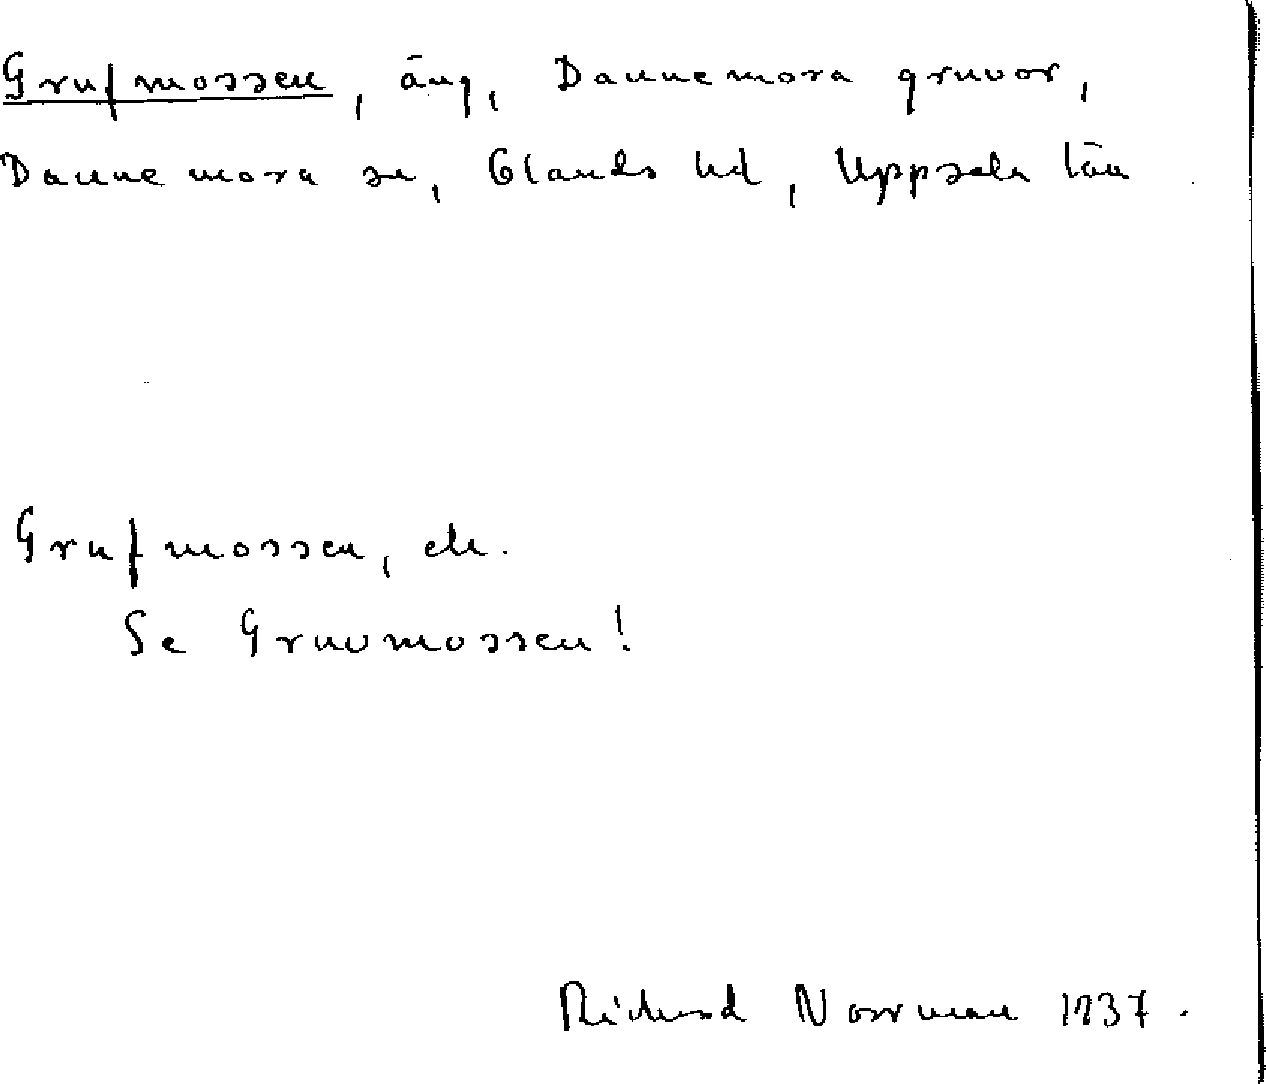 Grufmossen, äng, Dannemora gruvor,
Dannemora sn, Olands hd, Uppsala län
Grufmossen, ek.
Se Gruvmossen!
Richard Norrman 1937.